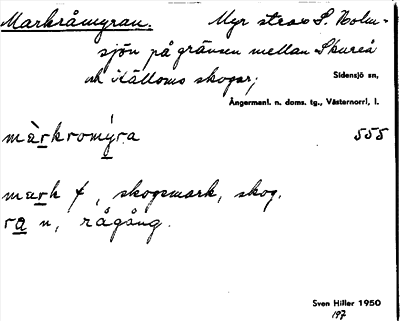 Markråmyran. Myr strax S. Holm-
sjön på gränsen mellan Skureå
och Källoms skogar;
Sidensjö sn,
Ångermanl. n. doms. tg., Västernorrl. l.
màrkromýra 555
mark f, skogsmark, skog.
ra n, rågång.
Sven Hiller 1950
197